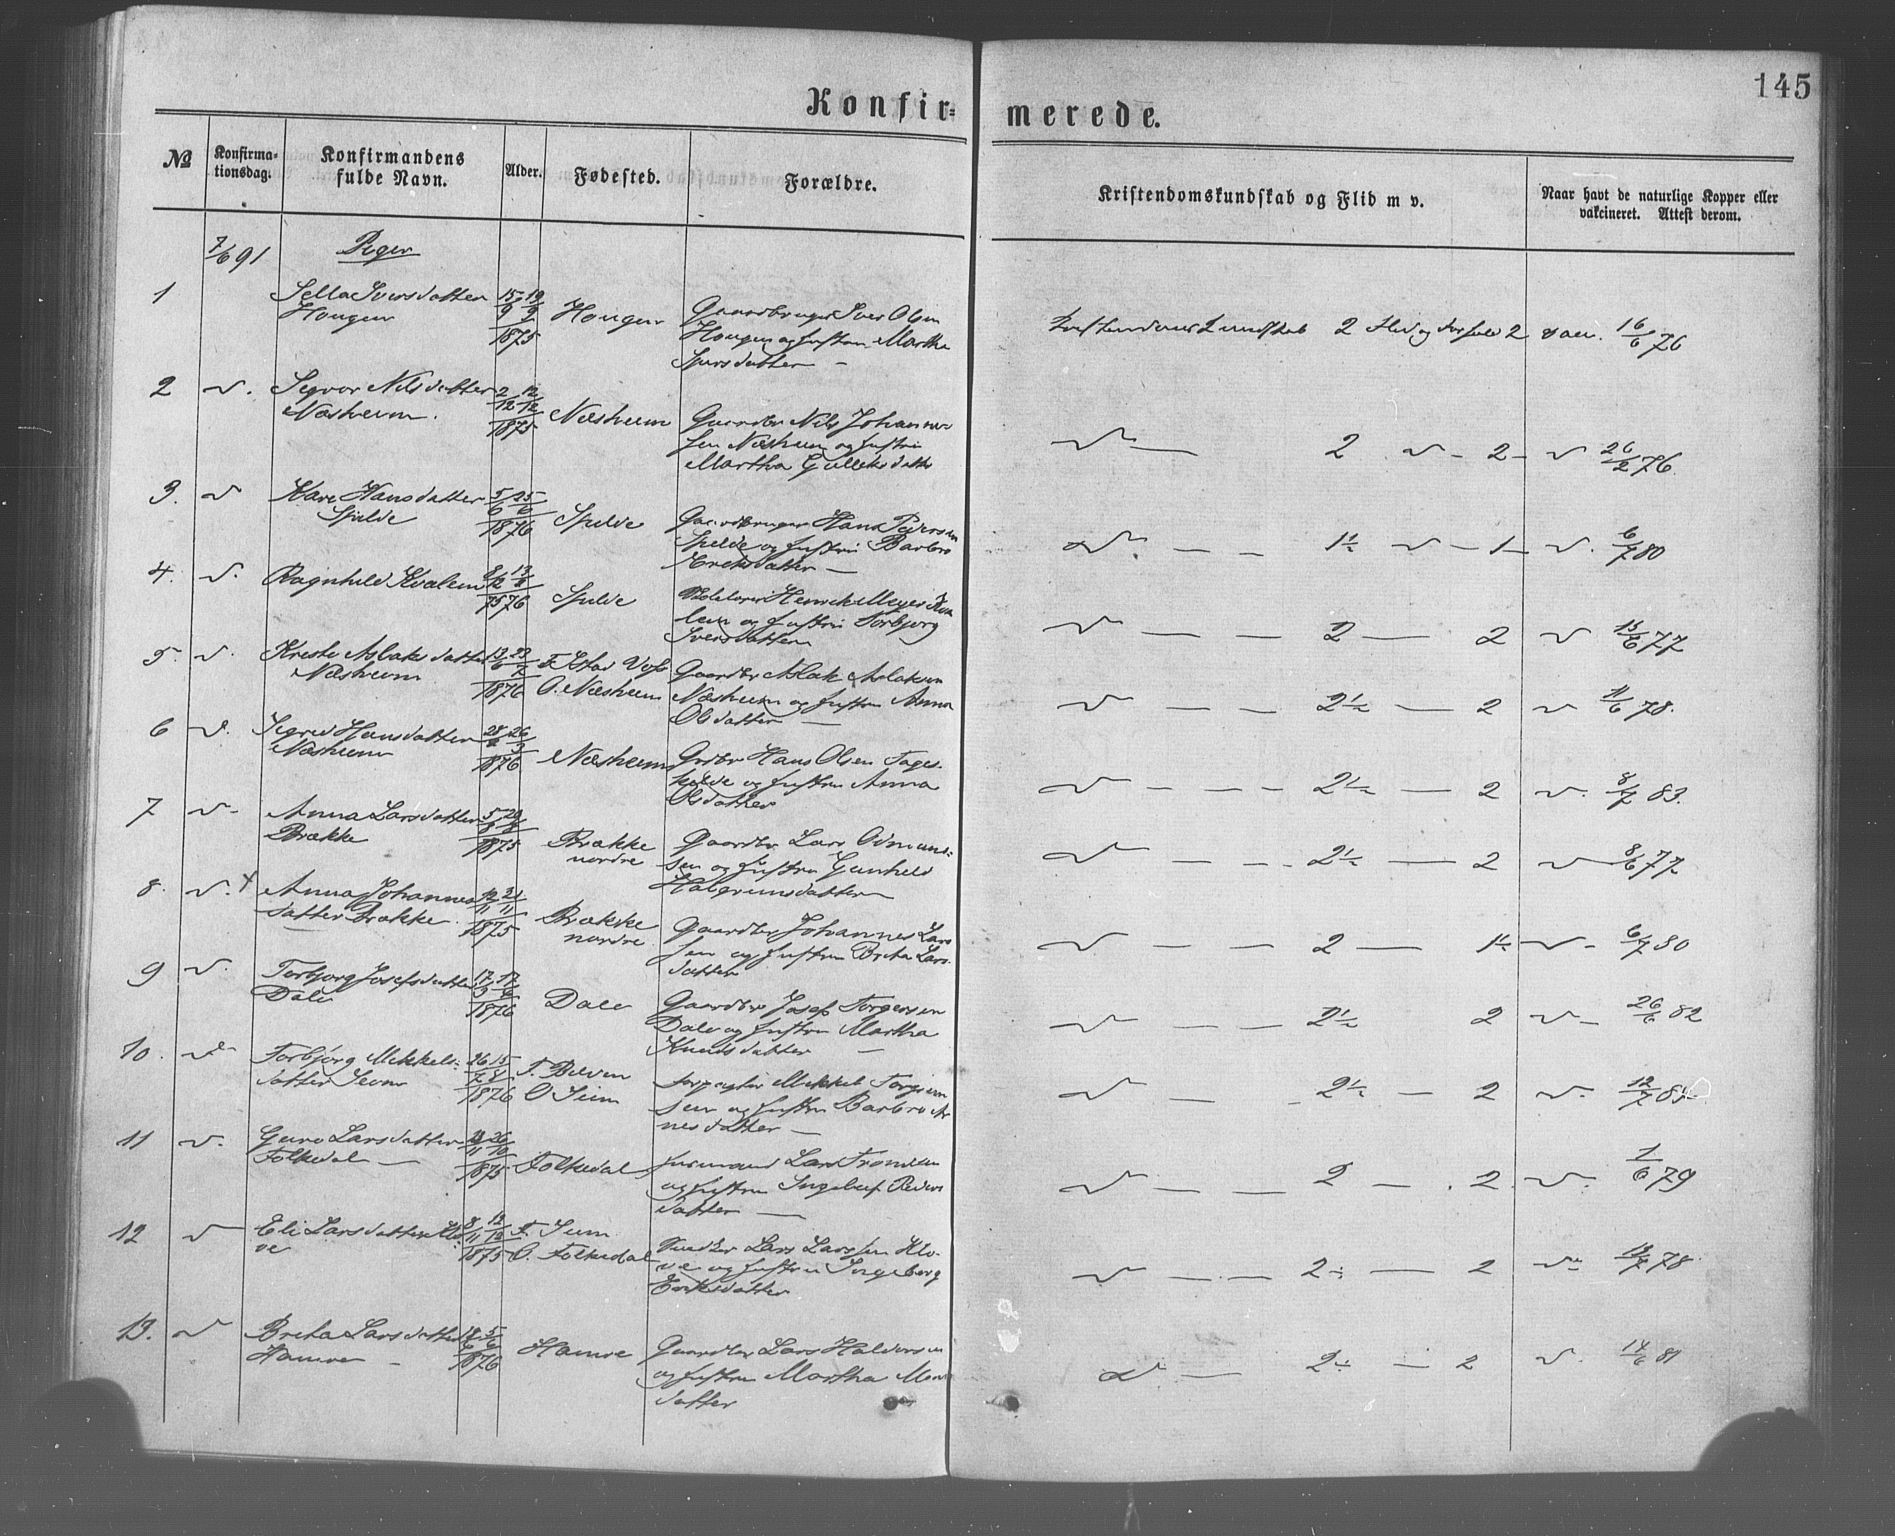 145
Konfir=
merede.
№
Konfirma-
tionsdag.
Konfirmandens
fulde Navn.
Alder.
Fødested.
Forældre.
Kristendomskundskab og Flid m v.
Naar havt de naturlige Kopper eller
vakcineret. Attest derom.
7/6 91
Piger
1
Sella Iversdatter
Hougen
15/9 19/9
1875
Hougen
Gaardbruger Iver Olsen
Hougen og hustru Martha
Kristendomskundskab 2 Flid og Forhold 2
vacc. 16/6 76
2
Nilsdatter
Næsheim.
2/12 12/12
1875
Næsheim
Gaardbr Nils Johannes
sen Næsheim og hustru
Martha Gulleksdatter
2 2
26/2 76.
3.
Kari Hansdatter
Spilde
5/6 25/6
1876
Spilde
Gaardbruger Hans Pedersen
Spilde og hustru Barbro
1½ 1
6/7 80
4.
Ragnhild Kvalem
75 76
Spilde
Henrik Meyer Kva
lem og hustru Torbjørg
Iversdatter
2 2
15/6 77
5.
Aslaksdatter
Næsheim
1876
O. Næsheim
Gaardbr Aslak Aslaksen
Næsheim og hustru Anna
Olsdatter
2½ 2
11/6 78.
6
Sigrid Hansdatter
Næsheim
1876
Næsheim
Grdbr Hans Olsen
og hustru Anna
Olsdatter
2½ 2
8/7 83.
7
Anna Larsdatter
Brække
1875
Brække
nordre
Gaardbr Lars Odmund-
sen og hustru Gunhild
Halgrimsdatter
2½ 2
8/6 77
8.
Anna Johannes
datter Brække.
21/11
1875
Brække
nordre
Gaardbr Johannes Lars
sen og hustru Brita Lars
datter
2 1½
6/7 80
9
Torbjorg Josefsdatter
Dale
1876
Dale
Gaardbr Josef Torgersen
Dale og hustru Martha
Knudsdatter
2½ 2
26/6 82
10.
Torbjørg Mikkels-
datter Seim
1876
F.
O Seim
Mikkel
sen og hustru Barbro Ar
nesdatter
2½ 2
12/7 85
11
Guro Larsdatter
Folkedal
1875
Folkedal
Husmand Lars Trondsen
og hustru Peders
datter
2 2
1/6 79
12
Eli Larsdatter Klo
ve
8/11 12/12
1875
F. Seim
O. Folkedal
Lars Larssen Klo-
ve og hustru Ingeborg
Eriksdatter
2 2
78
13.
Brita Larsdatter
Hamre
1876
Hamre
Gaardbr Lars Haldorsen
og hustru Martha
datter
2 2
14/6 81